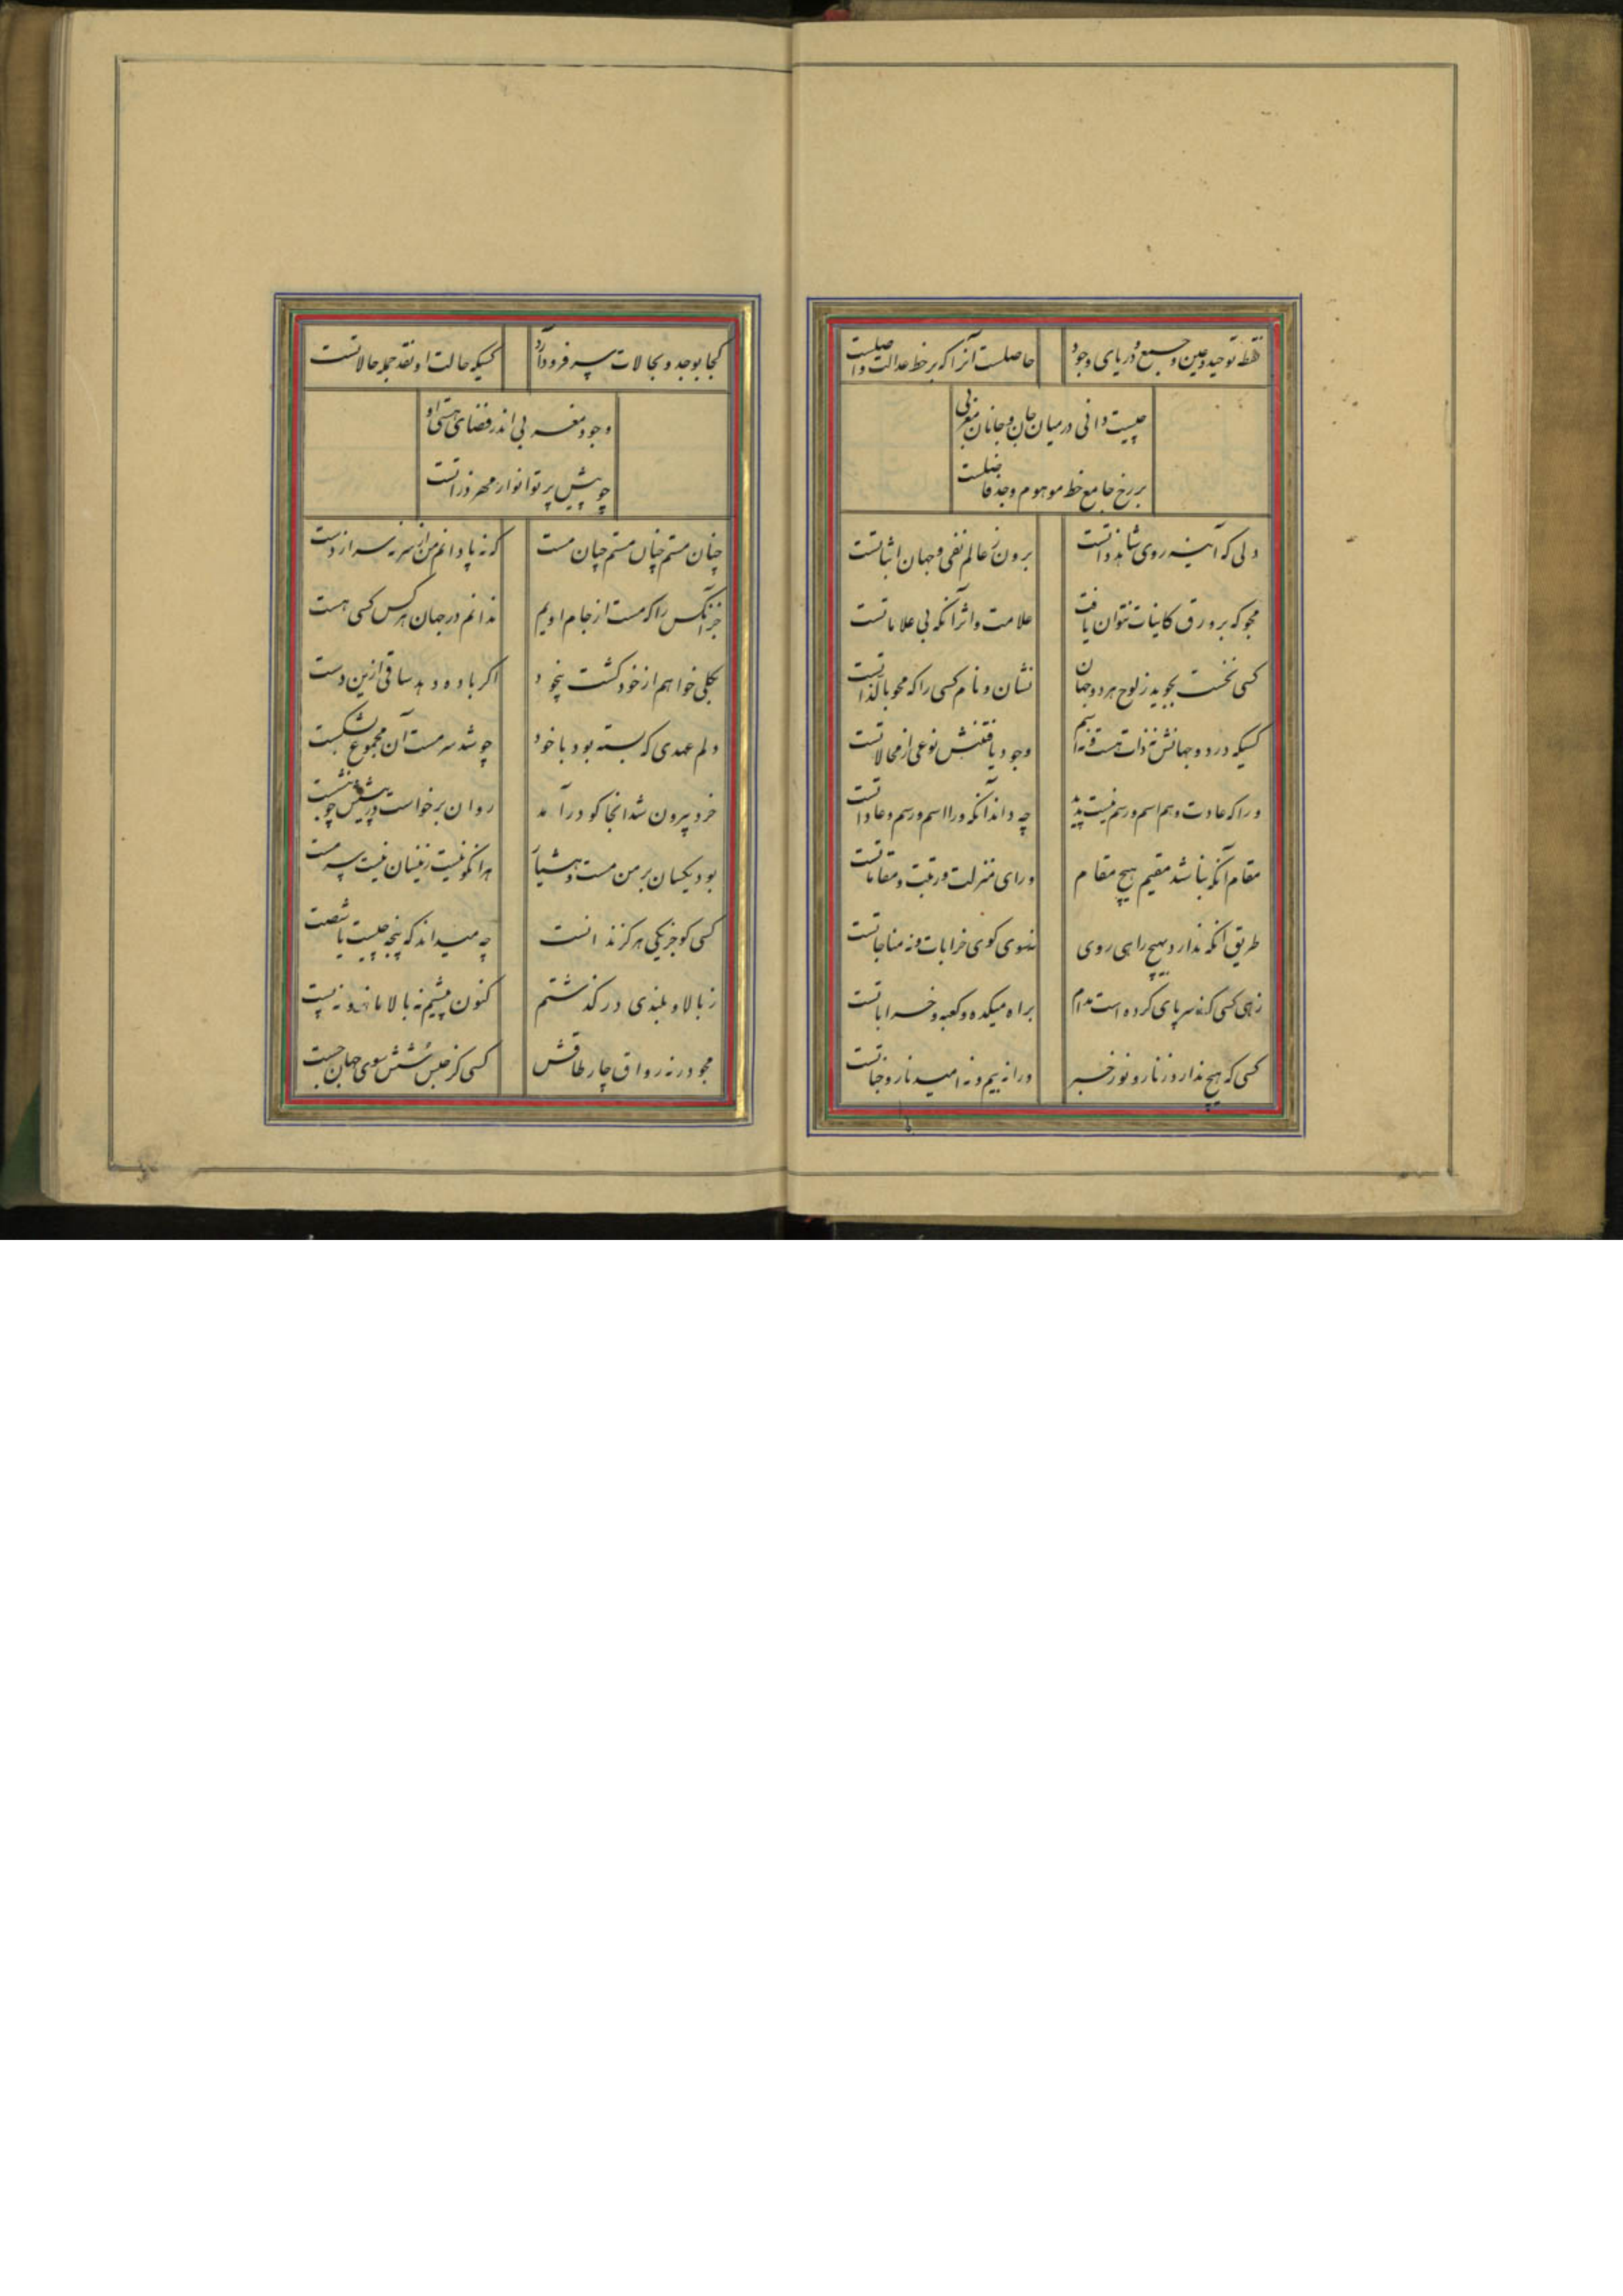 نقطه توحید و عین و جمع و دریای وجود
حاصلست آنرا که بر خط عدالت واصلست
چیست دانی در میان جان و جانان مغربی
برزخ جامع خط موهوم و حد فاصلست
دلی که آینه روی شاهد ذاتست
برون ز عالم نفی و جهان اثباتست
مجو که بر ورق کاینات نتوان یافت
علامت و اثر آنکه بی علاماتست
کسی نخست بجوید ز لوح هر دو جهان
نشان و نام کسی را که محو بالذاتست
کسیکه در دو جهانش نه ذات هست و نه اسم
وجود یافتنش نوعی از محالاتست
ورا که عادت و هم اسم و رسم نیست پدید
چه داند آنکه ورا اسم و رسم و عاداتست
مقام آنکه نباشد مقیم هیچ مقام
ورای منزلت و رتبت و مقاماتست
طریق آنکه ندارد بهیچ راهی روی
نه سوی کوی خرابات و نه مناجاتست
زهی کسی که ز سر پای کرده است مدام
براه میکده و کعبه و خراباتست
کسی که هیچ ندارد ز نار و نور خبر
ورا نه بیم و نه امید نار و جناتست
کجا بوجد و بحالات سر فرود آرد
کسیکه حالت او نقد جمله حالاتست
وجود مغربی اندر فضای هستی او
چو پیش پرتو انوار مهر ذراتست
چنان مستم چنان مستم چنان مست
که نه پا دانم من از سر نه سر از دست
جز آنکس را که مست از جام اویم
ندانم در جهان هرکس کسی هست
بکلی خواهم از خود گشت بیخود
اگر باده دهد ساقی ازین دست
دلم عهدی که بسته بود با خود
چو شد سرمست آن مجموع بشکست
خرد بیرون شد انجا کو درآمد
روان برخاست در پیشش چو بنشست
بود یکسان بر من مست و هشیار
هرانکو نیست زینسان نیست سرمست
کسی کو جز یکی هرگز ندانست
چه میداند که پنجه چیست یا شصت
ز بالا و بلندی در گذشتم
کنون پیشم نه بالا ماند و نه پست
مجو در نه رواق چار طاقش
کسی کز حبس شش سوی جهان جست